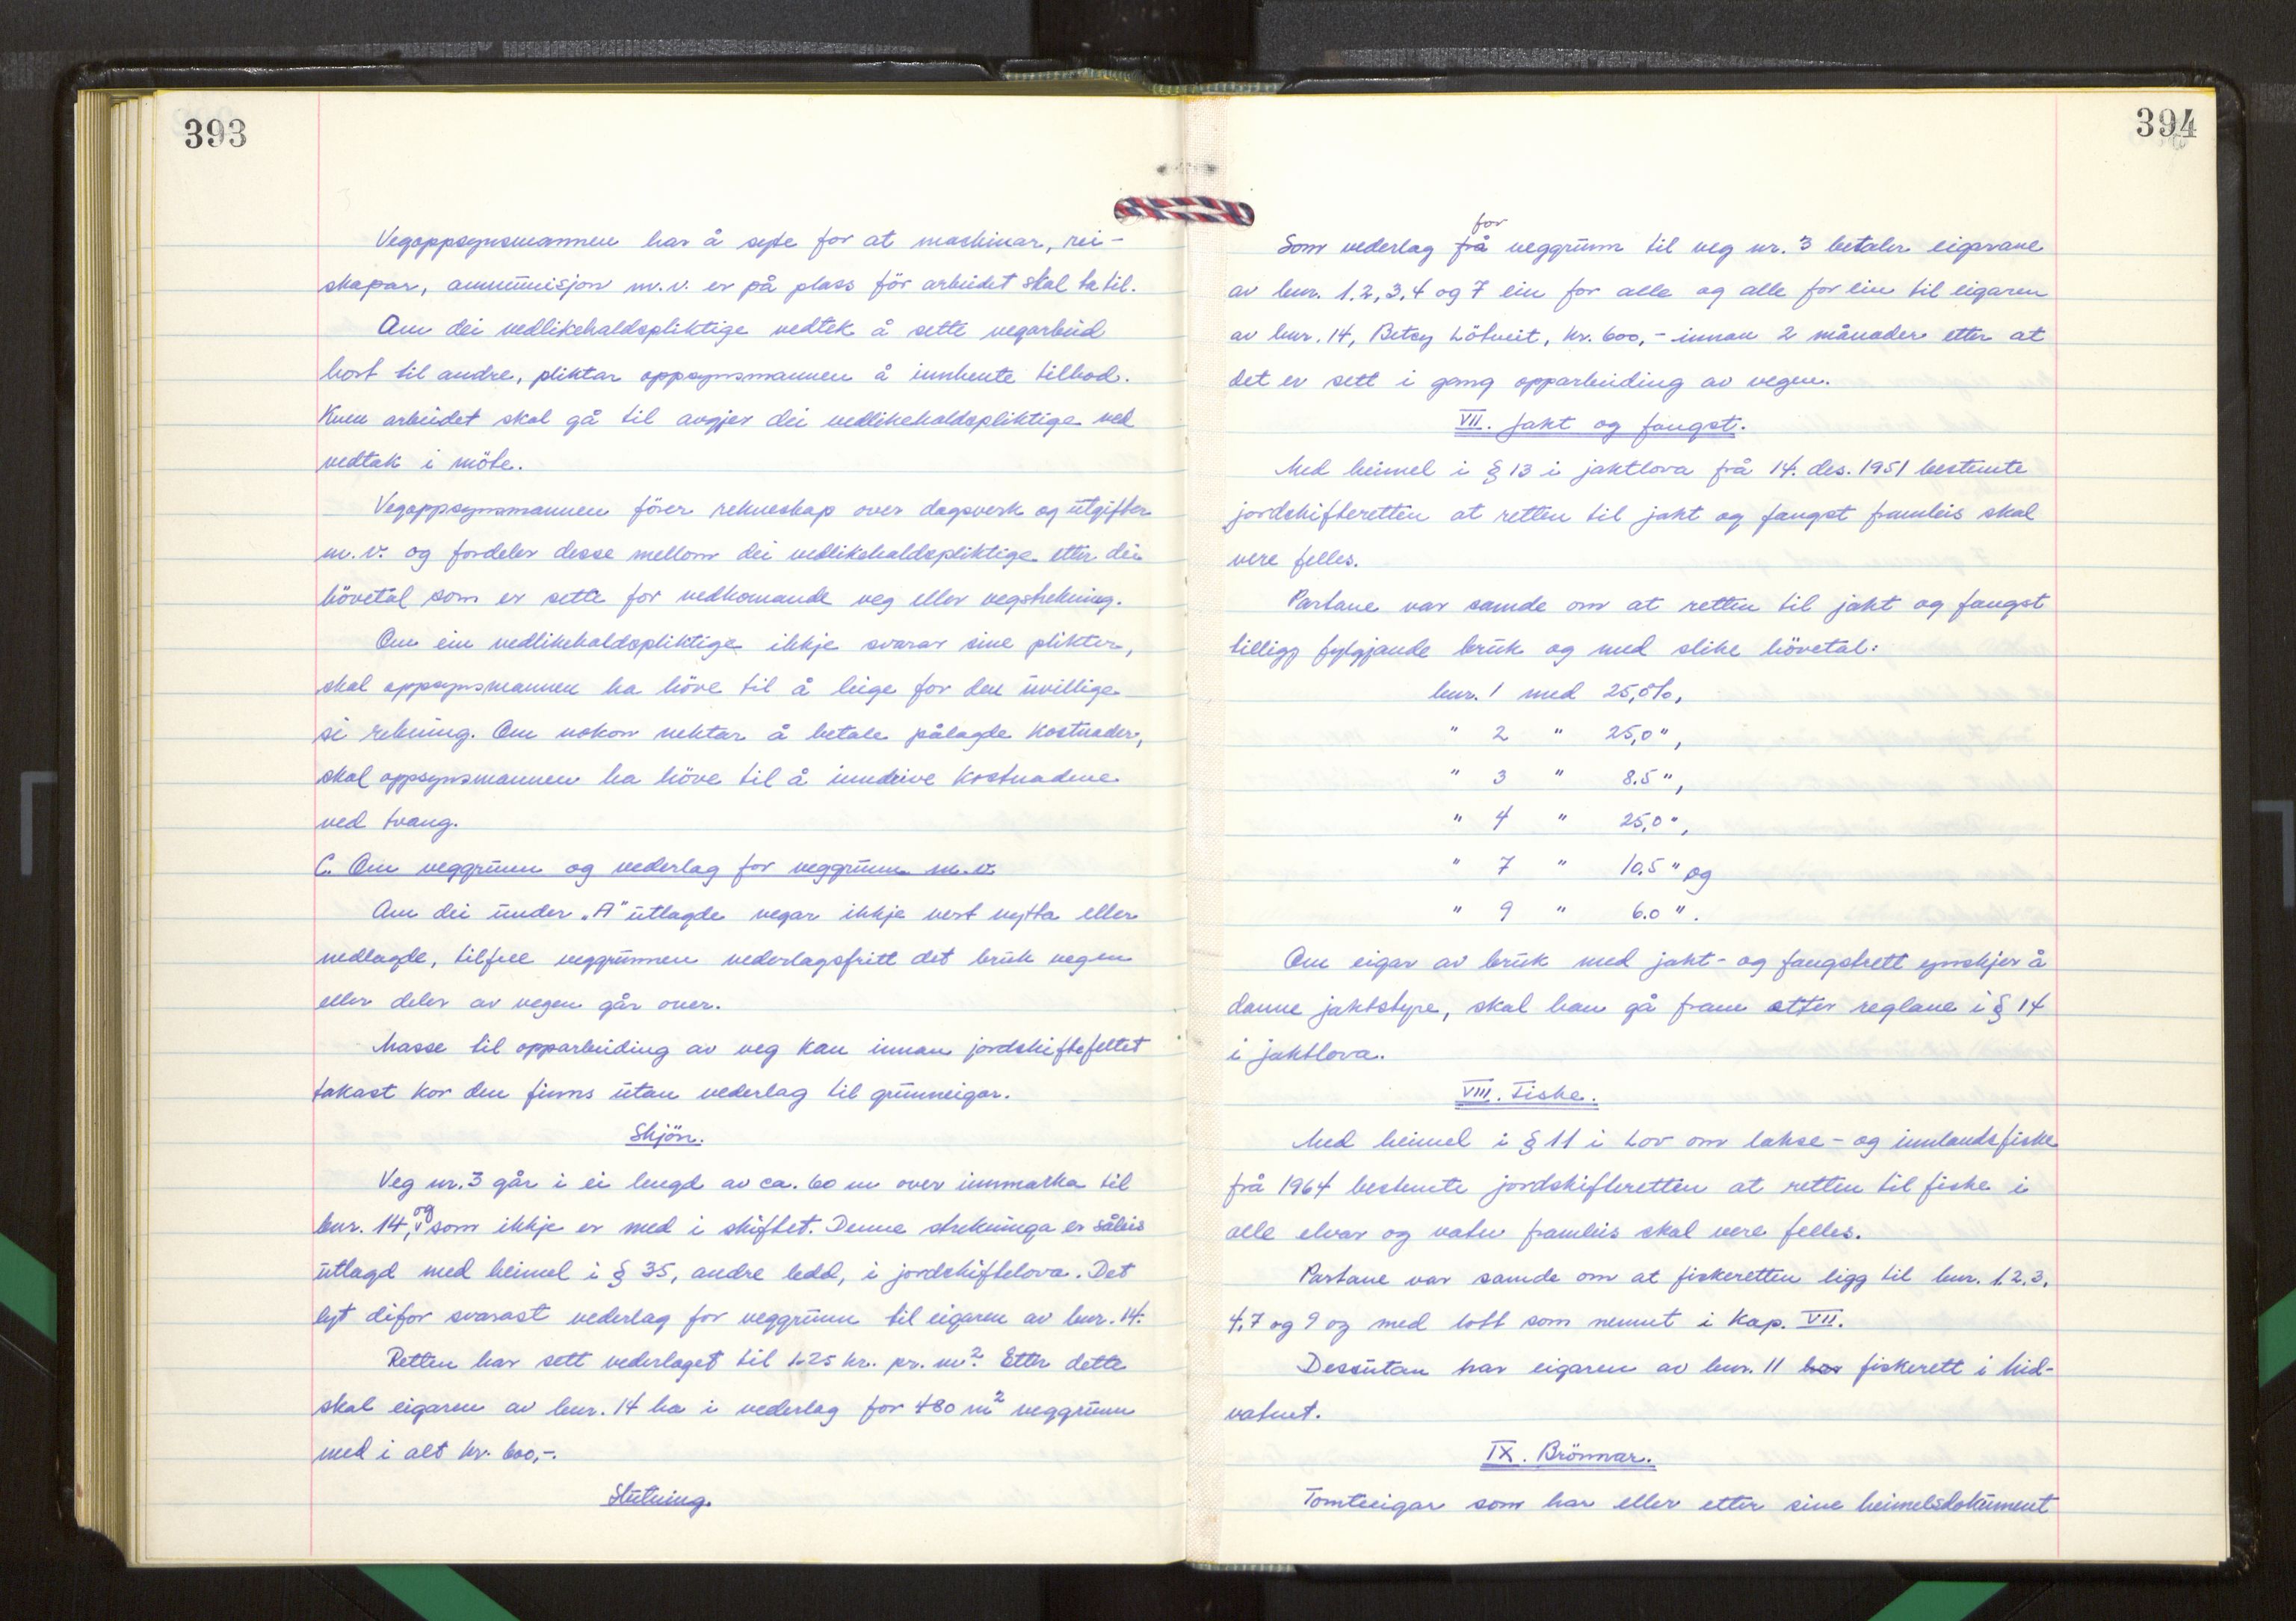 393
Vegoppsynsmannen har å syte for at maskinar, rei-
skapar, ammunisjon m.v. er på plass för arbeidet skal ta til.
Om dei vedlikehaldspliktige vedtek å sette vegarbeid
bort til andre, pliktar oppsynsmannen å innhente tilbod.
Kven arbeidet skal gå til avgjer dei vedlikehaldspliktige ved
vedtak i möte.
Vegoppsynsmannen förer rekneskap over dagsverk og utgifter
m.v. og fordeler desse mellom dei vedlikehaldspliktige etter dei
hövetal som er sette for vedkomande veg eller vegstrekning.
Om ein vedlikehaldspliktige ikkje svarar sine plikter,
skal oppsynsmannen ha höve til å leige for den uvillige
si rekning. Om nokon nektar å betale pålagde kostnader,
skal oppsynsmannen ha höve til å inndrive kostnadene
ved tvang.
C. Om veggrunn og vederlag for veggrunn m.v.
Om dei under „A" utlagde vegar ikkje vert nytta eller
nedlagde, tilfell veggrunnen vederlagsfritt det bruk vegen
eller deler av vegen går over.
Masse til opparbeiding av veg kan innan jordskiftefeltet
takast kor den finns utan vederlag til grunneigar.
Skjön.
Veg nr. 3 går i ei lengd av ca. 60 m over innmarka til
bnr. 14, og som ikkje er med i skiftet. Denne strekninga er såleis
utlagd med heimel i § 35, andre ledd, i jordskiftelova. Det
lyt difor svarast vederlag for veggrunn til eigaren av bnr. 14.
Retten har sett vederlaget til 1.25 kr. pr. m². Etter dette
skal eigaren av bnr. 14 ha i vederlag for 480 m² veggrunn
med i alt kr. 600,-.
Slutning.
394
Som vederlag frå for veggrunn til veg nr. 3 betaler eigarane
av bnr. 1, 2, 3, 4 og 7 ein for alle og alle for ein til eigaren
av bnr. 14, Betsy Lötveit, kr. 600,- innan 2 månader etter at
det er sett i gang opparbeiding av vegen.
VII. Jakt og fangst.
Med heimel i § 13 i jaktlova frå 14. des. 1951 bestemte
jordskifteretten at retten til jakt og fangst framleis skal
vere felles.
Partane var samde om at retten til jakt og fangst
tilligg fylgjande bruk og med slike hövetal:
bnr. 1 med 25,0%,
" 2 " 25,0 ",
" 3 " 8.5 ",
" 4 " 25,0 ",
" 7 " 10.5 " og
" 9 " 6.0 ".
Om eigar av bruk med jakt- og fangstrett ynskjer å
danne jaktstyre, skal han gå fram etter reglane i § 14
i jaktlova.
VIII. Fiske.
Med heimel i § 11 i Lov om lakse- og innlandsfiske
frå 1964 bestemte jordskifteretten at retten til fiske i
alle elvar og vatn framleis skal vere felles.
Partane var samde om at fiskeretten ligg til bnr. 1. 2. 3.
4, 7 og 9 og med lott som nemnt i kap. VII.
Dessutan har eigaren av bnr. 11 har fiskerett i Mid-
vatnet.
IX. Brönnar.
Tomteeigar som har eller etter sine heimelsdokument